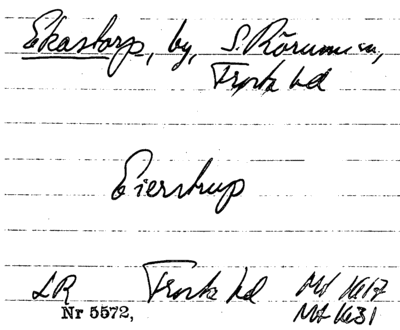 Ekastorp, by, S. Rörum sn,
Frosta hd
Eierstrup
LR Frosta hd Mt 1617
Nr 5572, Mt 1631